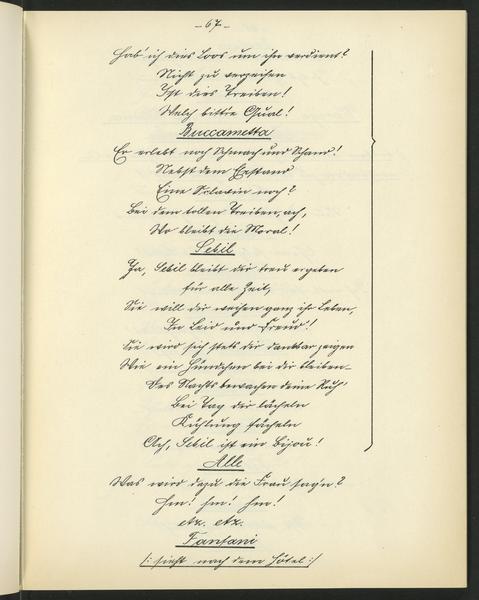 – 67. –
Hab' ich dies Loos um ihn verdient?
Nicht zu verzeihen
Ist dies Treiben!
Welch bitt're Qual!
Buccametta
Er erlebt noch Schmach und Schand!
Nebst dem Ehstand
Eine Sclavin noch?
Bei dem tollen Treiben, ach,
Wo bleibt die Moral!
Sebil
Ja, Sebil bleibt dir treu ergeben
für alle Zeit,
Sie will dir weihen ganz ihr Leben,
In Leid und Freud'!
Sie wird sich stets dir dankbar zeigen
Wie ein Hündchen bei dir bleiben –
Des Nachts bewachen deine Ruh'
Bei Tag dir lächeln
Kühlung fächeln
Ach, Sebil ist ein Bijou!
Alle
Was wird dazu die Frau sag'n?
Hm! hm! hm!
etz. etz.
Fantani
/: sieht nach dem Hôtel :/